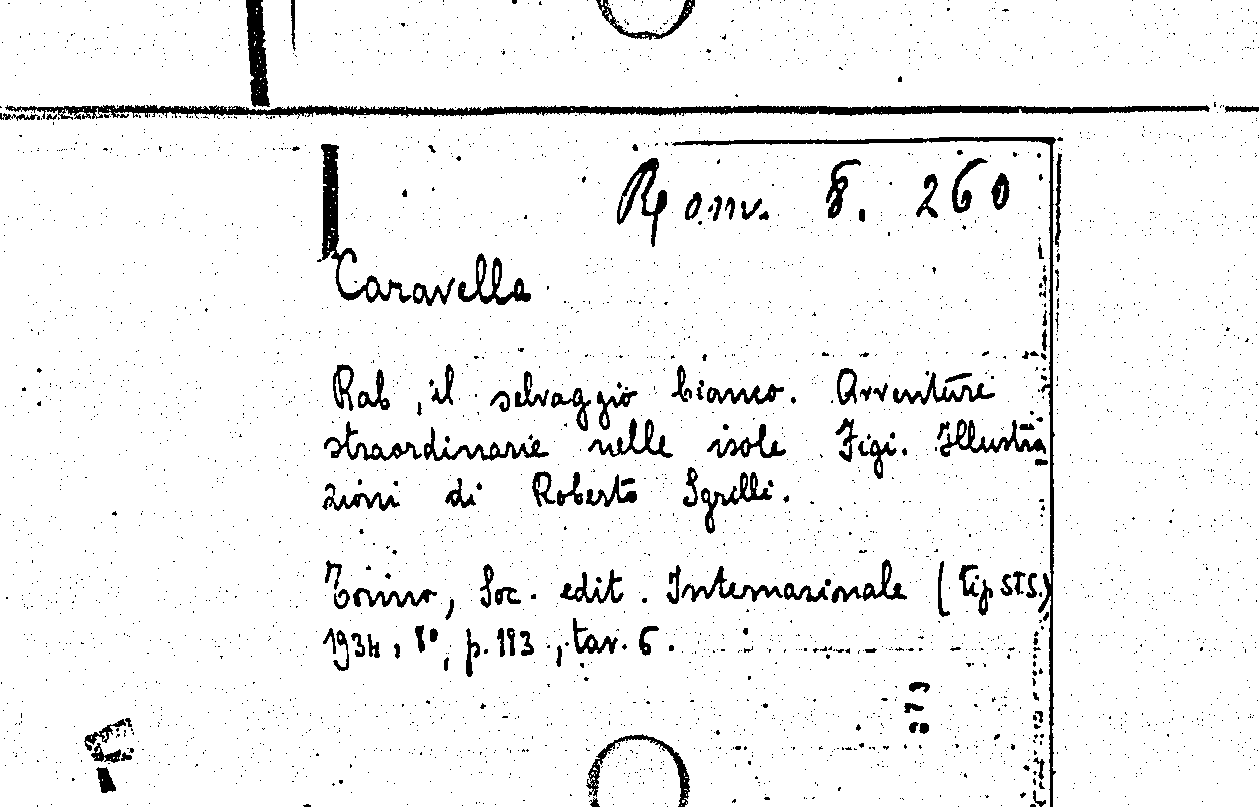 Rom. 8. 260
Caravella
Rab, il selvaggio bianco. Avventure
straordinarie nelle isole Figi. Illustra
zioni di Roberto Sgrilli.
Torino, Soc. edit. Internazionale (tip. S.T.S.)
1934, 8°, p. 193, tav. 6.
373